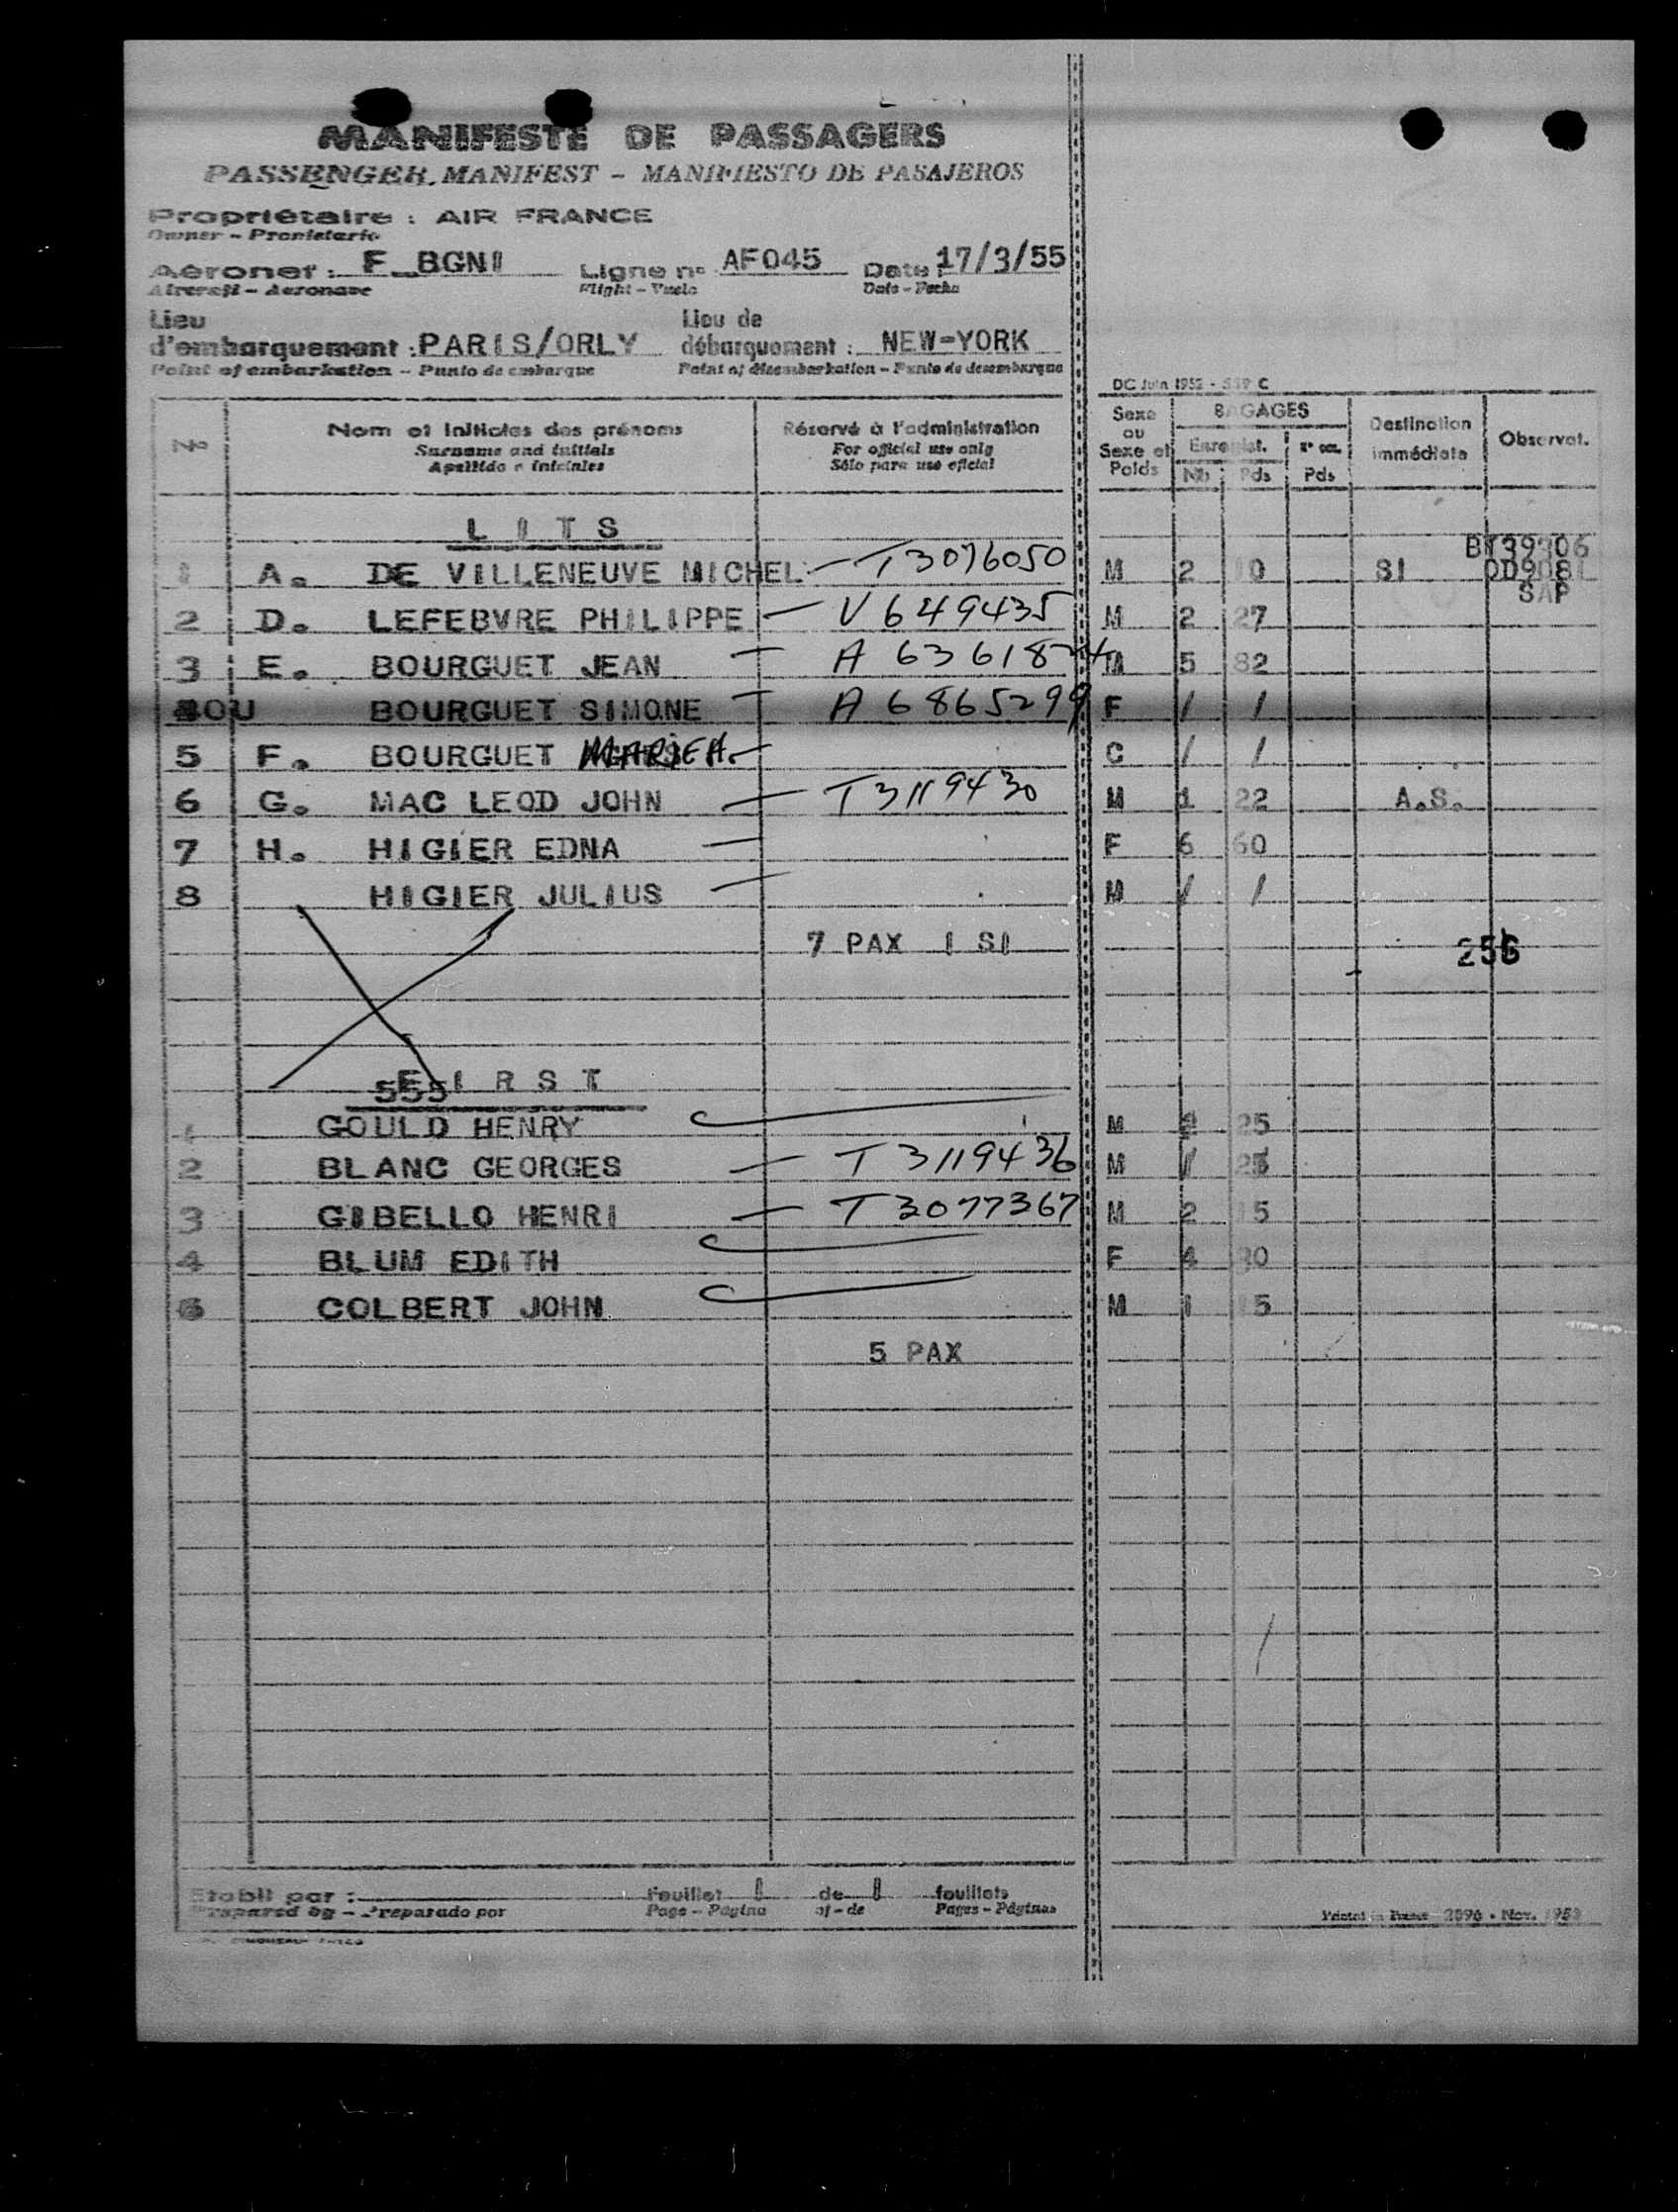 MANIFESTE DE PASSAGERS
PASSENGER MANIFEST - MANIFIESTO DE PASAJEROS
Propriétaire : AIR FRANCE
Owner - Propietario
Aéronef : F_BGNI Ligne n° AF045 Date : 17/3/55
Aircraft - Aeronave Flight - Vuelo Date - Fecha
Lieu d'embarquement : PARIS/ORLY Lieu de débarquement : NEW-YORK
Point of embarkation - Punto de embarque Point of disembarkation - Punto de desembarque
DC Juin 1952 - 519 C
N° Nom et initiales des prénoms Réservé à l'administration Sexe ou Sexe et Poids BAGAGES Destination immédiate Observat.
Surname and initials For official use only Enregist.
Apellido e iniciales Sólo para uso oficial Nb Pds Pds
LITS
1 A. DE VILLENEUVE MICHEL - T3076050 M 2 10 SI
SAP
2 D. LEFEBVRE PHILIPPE - V649435 M 2 27
3 E. BOURGUET JEAN - M 5 82
BOURGUET SIMONE - A6865299 F / /
5 F. BOURGUET MARIE A. - C / /
6 G. MAC LEOD JOHN - T3119430 M 1 22 A.S.
7 H. HIGIER EDNA - F 6 60
8 HIGIER JULIUS - M / /
7 PAX 1 SI 256
FIRST
555
1 GOULD HENRY M 2 25
2 BLANC GEORGES - T3119436 M 1
3 GIBELLO HENRI - T3077367 M 2 15
4 BLUM EDITH F 4
COLBERT JOHN M 1 15
5 PAX
Etabli par : Feuillet 1 de 1 feuillets
Prepared by - Preparado por Page - Página of - de Pages - Páginas
Printed in France 2896 - Nov. 1953